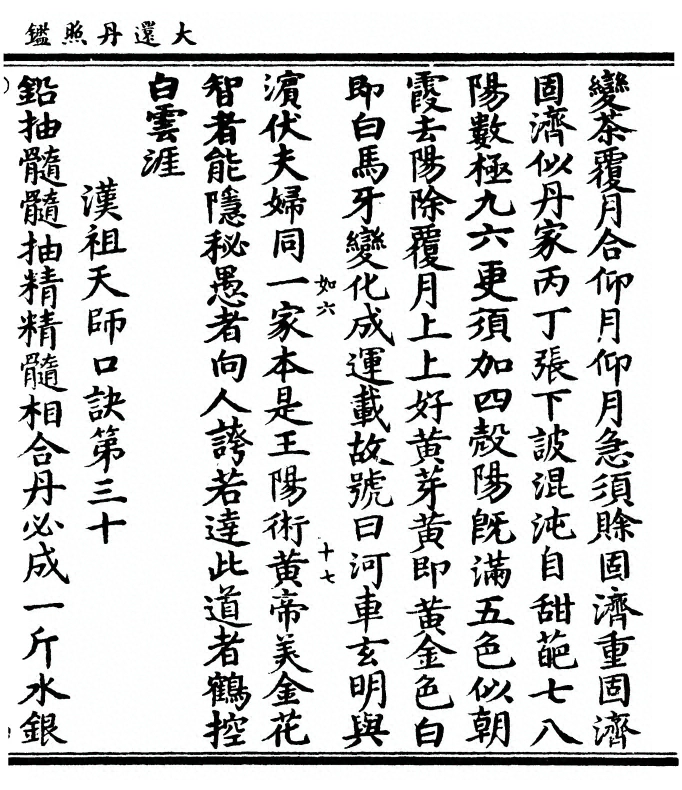 大還丹照鑑
變茶覆月合仰月仰月急須賖固濟重固濟
固濟似丹家丙丁張下詖混沌自甜葩七八
陽數極九六更須加四殼陽既滿五色似朝
霞去陽除覆月上上好黃芽黃即黃金色白
即白馬牙變化成運載故號曰河車玄明與
濵伏夫婦同一家本是王陽術黃帝美金花
如六
十七
智者能隱秘愚者向人誇若達此道者鶴控
白雲涯
漢祖天師口訣第三十
鉛抽髓髓抽精精髓相合丹必成一斤水銀